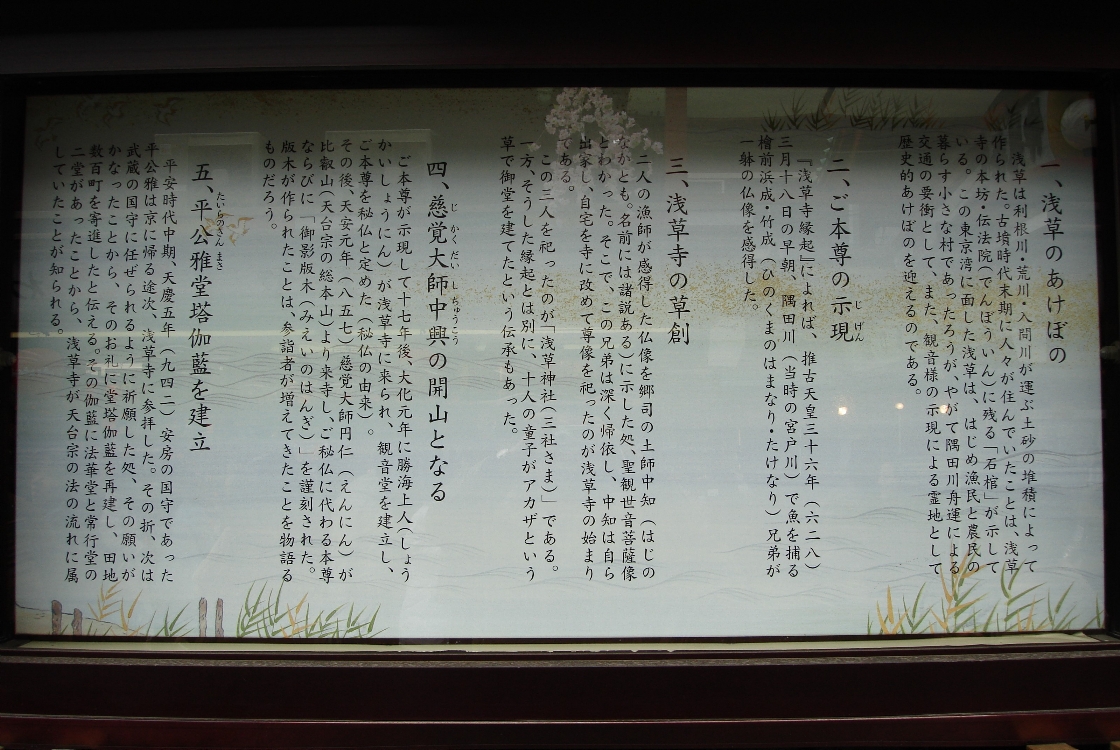 一、浅草のあけぼの
浅草は利根川・荒川・入間川が運ぶ土砂の堆積によって
作られた。古墳時代末期に人々が住んでいたことは、浅草
寺の本坊・伝法院(でんぼういん)に残る「石棺」が示して
いる。この東京湾に面した浅草は、はじめ漁民と農民の
暮らす小さな村であったろうが、やがて隅田川舟運による
交通の要衝として、また、観音様の示現による霊地として
歴史的あけぼのを迎えるのである。
二、ご本尊の示現
じげん
『浅草寺縁起』によれば、推古天皇三十六年(六二八)
三月十八日の早朝、隅田川(当時の宮戸川)で魚を捕る
檜前浜成・竹成(ひのくまのはまなり・たけなり)兄弟が
一躰の仏像を感得した。
三、浅草寺の草創
二人の漁師が感得した仏像を郷司の土師中知(はじの
なかとも。名前には諸説ある)に示した処、聖観世音菩薩像
とわかった。そこで、この兄弟は深く帰依し、中知は自ら
出家し、自宅を寺に改めて尊像を祀ったのが浅草寺の始まり
である。
この三人を祀ったのが「浅草神社(三社さま)」である。
一方、そうした縁起とは別に、十人の童子がアカザという
草で御堂を建てたという伝承もあった。
四、慈覚大師中興の開山となる
じかくだいしちゅうこう
ご本尊が示現して十七年後、大化元年に勝海上人(しょう
かいしょうにん)が浅草寺に来られ、観音堂を建立し、
ご本尊を秘仏と定めた(秘仏の由来)。
その後、天安元年(八五七)慈覚大師円仁(えんにん)が
比叡山(天台宗の総本山)より来寺し、ご秘仏に代わる本尊
ならびに「御影版木(みえいのはんぎ)」を謹刻された。
版木が作られたことは、参詣者が増えてきたことを物語る
ものだろう。
五、平公雅堂塔伽藍を建立
たいらのきんまさ
平安時代中期、天慶五年(九四二)安房の国守であった
平公雅は京に帰る途次、浅草寺に参拝した。その折、次は
武蔵の国守に任ぜられるように祈願した処、その願いが
かなったことから、そのお礼に堂塔伽藍を再建し、田地
数百町を寄進したと伝える。その伽藍に法華堂と常行堂の
二堂があったことから、浅草寺が天台宗の法の流れに属
していたことが知られる。